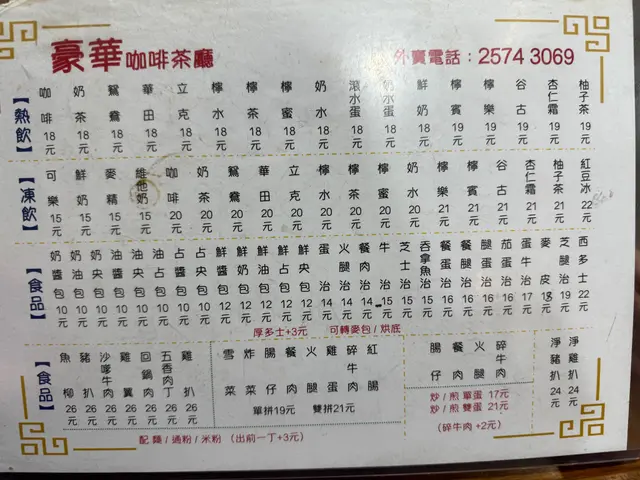 豪華咖啡茶廳
外賣電話：2574 3069
【熱飲】
咖啡 18元
奶茶 18元
鴛鴦 18元
華田 18元
立克 18元
檸水 18元
檸茶 18元
檸蜜 18元
奶水 18元
滾水蛋 18元
奶水蛋 18元
鮮奶 18元
檸賓 19元
檸樂 19元
谷古 19元
杏仁霜 19元
柚子茶 19元
【凍飲】
可樂 15元
鮮奶 15元
麥精 15元
維他奶 15元
咖啡 20元
奶茶 20元
鴛鴦 20元
華田 20元
立克 20元
檸水 20元
檸茶 20元
檸蜜 20元
奶水 20元
檸樂 21元
檸賓 21元
谷古 21元
杏仁霜 21元
柚子茶 21元
紅豆冰 22元
【食品】
奶醬包 10元
奶央包 10元
油醬包 10元
油央包 10元
油占包 10元
占醬包 10元
占央包 10元
鮮醬包 12元
鮮奶包 12元
鮮油包 12元
鮮占包 12元
鮮央包 12元
蛋治 14元
火腿治 14元
餐肉治 14元
牛治 15元
芝士治 15元
吞拿魚治 15元
餐蛋治 16元
腿蛋治 16元
茄蛋治 16元
蛋牛治 17元
麥皮 18元
芝腿治 19元
西多士 22元
厚多士+3元 可轉麥包/烘底
【食品】
魚柳 26元
豬扒 26元
沙嗲牛肉 26元
雞翼 26元
回鍋肉 26元
五香肉丁 26元
雞扒 26元
雪菜
炸菜
腸仔
餐肉
火腿
雞蛋
碎牛肉
紅腸
單拼19元 雙拼21元
配麵/通粉/米粉 （出前一丁+3元）
腸仔
餐肉
火腿
碎牛肉
炒/煎單蛋 17元
炒/煎雙蛋 21元
（碎牛肉 +2元）
淨豬扒 24元
淨雞扒 24元